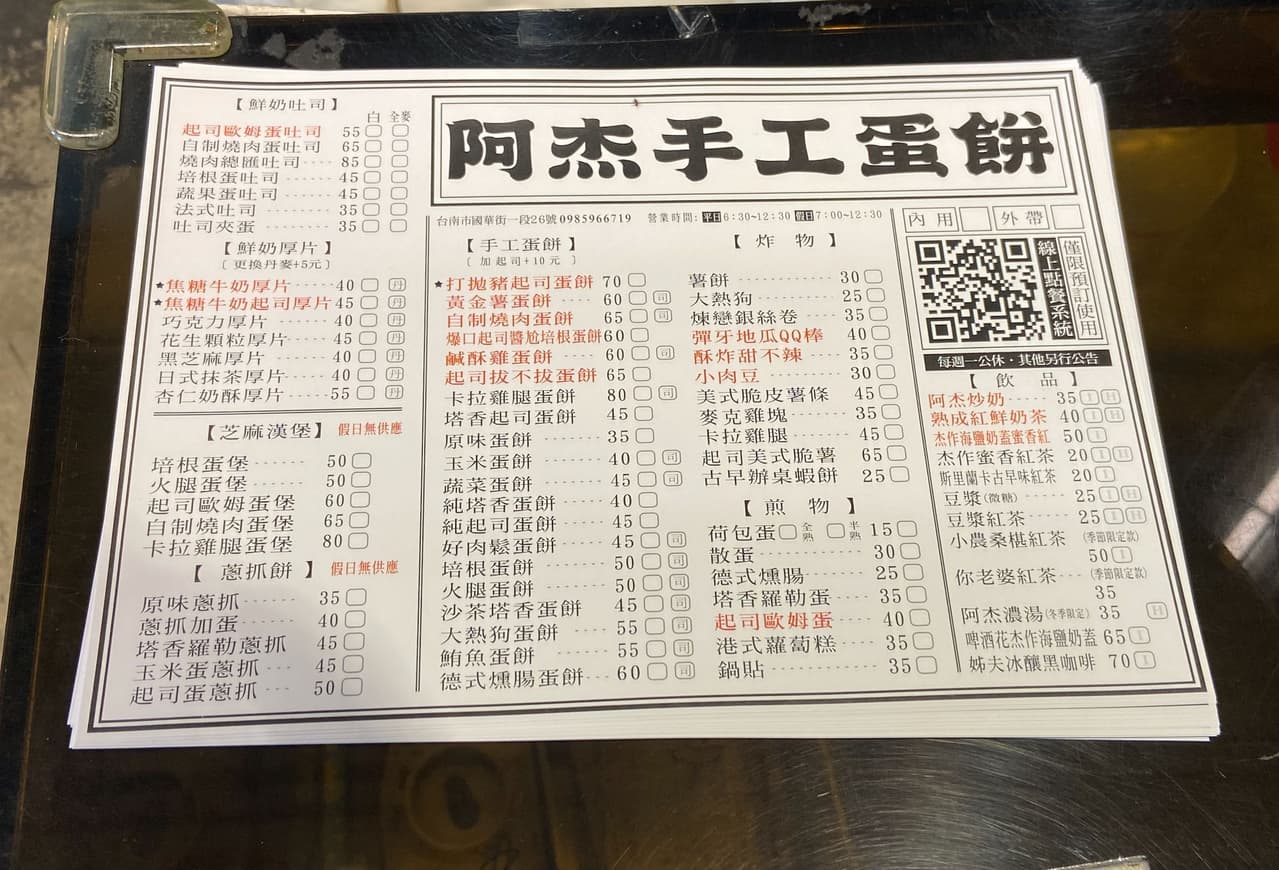 阿杰手工蛋餅
台南市國華街一段26號 0985966719 營業時間: 平日 6:30~12:30 假日 7:00~12:30
內用 外帶
線上點餐系統
僅限預訂使用
每週一公休・其他另行公告
【鮮奶吐司】
白 全麥
起司歐姆蛋吐司 55
自制燒肉蛋吐司 65
燒肉總匯吐司 85
培根蛋吐司 45
蔬果蛋吐司 45
法式吐司 35
吐司夾蛋 35
【鮮奶厚片】
〔更換丹麥+5元〕
★焦糖牛奶厚片 40 丹
★焦糖牛奶起司厚片 45 丹
巧克力厚片 40 丹
花生顆粒厚片 45 丹
黑芝麻厚片 40 丹
日式抹茶厚片 40 丹
杏仁奶酥厚片 55 丹
【芝麻漢堡】 假日無供應
培根蛋堡 50
火腿蛋堡 50
起司歐姆蛋堡 60
自制燒肉蛋堡 65
卡拉雞腿蛋堡 80
【蔥抓餅】 假日無供應
原味蔥抓 35
蔥抓加蛋 40
塔香羅勒蔥抓 45
玉米蛋蔥抓 45
起司蛋蔥抓 50
【手工蛋餅】
〔加起司+10元〕
★打拋豬起司蛋餅 70
黃金薯蛋餅 60 司
自制燒肉蛋餅 65 司
爆口起司醬尬培根蛋餅 60
鹹酥雞蛋餅 60 司
起司拔不拔蛋餅 65
卡拉雞腿蛋餅 80 司
塔香起司蛋餅 45
原味蛋餅 35
玉米蛋餅 40 司
蔬菜蛋餅 45 司
純塔香蛋餅 40
純起司蛋餅 45
好肉鬆蛋餅 45 司
培根蛋餅 50 司
火腿蛋餅 50 司
沙茶塔香蛋餅 45 司
大熱狗蛋餅 55 司
鮪魚蛋餅 55 司
德式燻腸蛋餅 60 司
【炸物】
薯餅 30
大熱狗 25
煉戀銀絲卷 35
彈牙地瓜QQ棒 40
酥炸甜不辣 35
小肉豆 30
美式脆皮薯條 45
麥克雞塊 35
卡拉雞腿 45
起司美式脆薯 65
古早辦桌蝦餅 25
【煎物】
荷包蛋 全熟 半熟 15
散蛋 30
德式燻腸 25
塔香羅勒蛋 35
起司歐姆蛋 40
港式蘿蔔糕 35
鍋貼 35
【飲品】
阿杰炒奶 35 I H
熟成紅鮮奶茶 40 I H
杰作海鹽奶蓋蜜香紅 50 I
杰作蜜香紅茶 20 I H
斯里蘭卡古早味紅茶 20 I
豆漿(微糖) 25 I H
豆漿紅茶 25 I H
小農桑椹紅茶 (季節限定款)
50 I
你老婆紅茶 (季節限定款)
35
阿杰濃湯(冬季限定) 35 H
啤酒花杰作海鹽奶蓋 65 I
姊夫冰釀黑咖啡 70 I